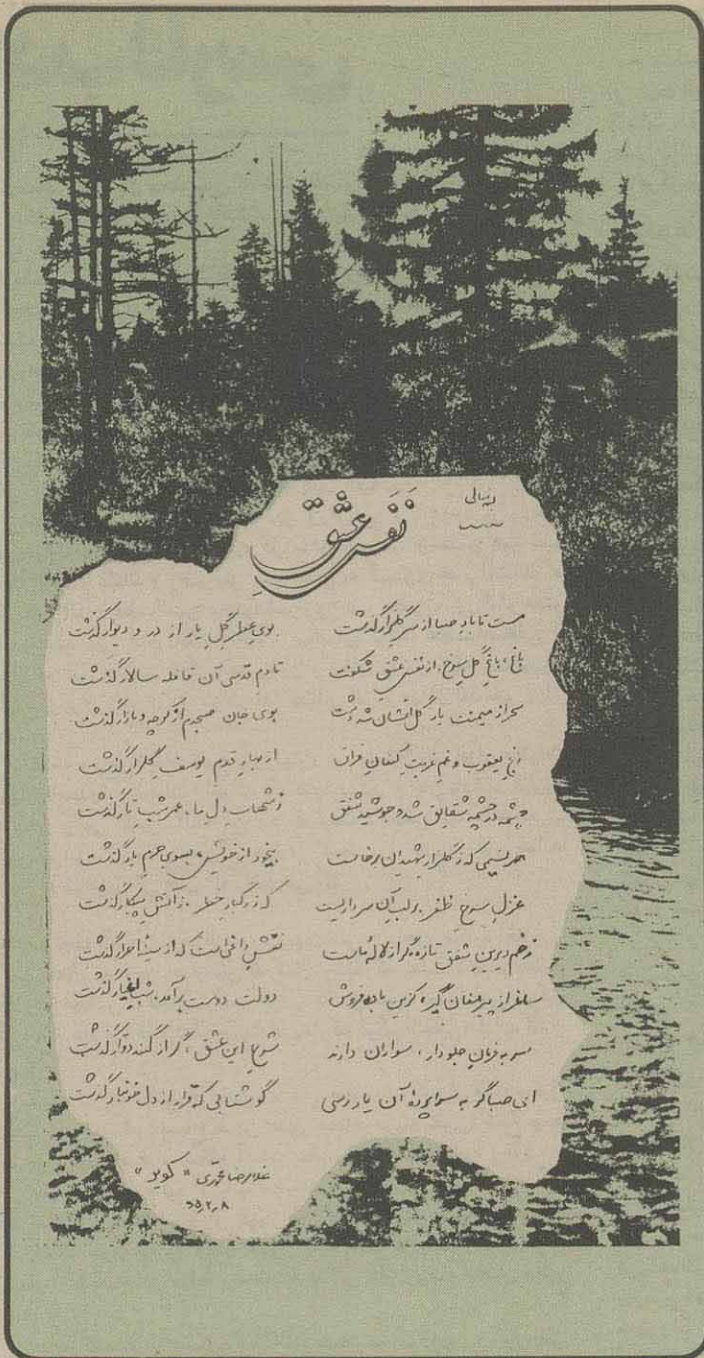 نَفَسِ عشق
مست تا باد صبا از سر گلزار گذشت بوی عطر گل یار از در و دیوار گذشت
باغ، باغِ گل سرخ، از نفس عشق شکفت تا دم قدسی آن قافله سالار گذشت
سحر از میمنت یار گل افشان شد و بوی جان صبحدم از کوچه و بازار گذشت
رنج یعقوب و غم غربت کنعان فراق از صبا، قدم یوسف گلزار گذشت
چشمه در چشمه شقایق شد و جوشید شفق ز شهاب دل ما، عمر شب تار گذشت
هر نسیمی که ز گلزار شهیدان برخاست بیخود از خویش، بسوی حرم یار گذشت
غزل سرخ ظفر بر لب آن سرداریست که ز رگبار خطر، ز آتش پیکار گذشت
زخم دیرین شفق تازه مگر از لاله ماست نقش داغی است که از سینهٔ احرار گذشت
ساغر از پیر مغان گیر، کزین باده فروش دولت دوست برآمد، شب اغیار گذشت
سر به فرمان جلودار، سواران دارند شرح این عشق، گر از گنبد دوار گذشت
ای صبا گر به سراپردهٔ آن یار رسی گو شتابی که قرار از دل خونبار گذشت
غلامرضا محمدی «کویر»
۶۵٫۲٫۸